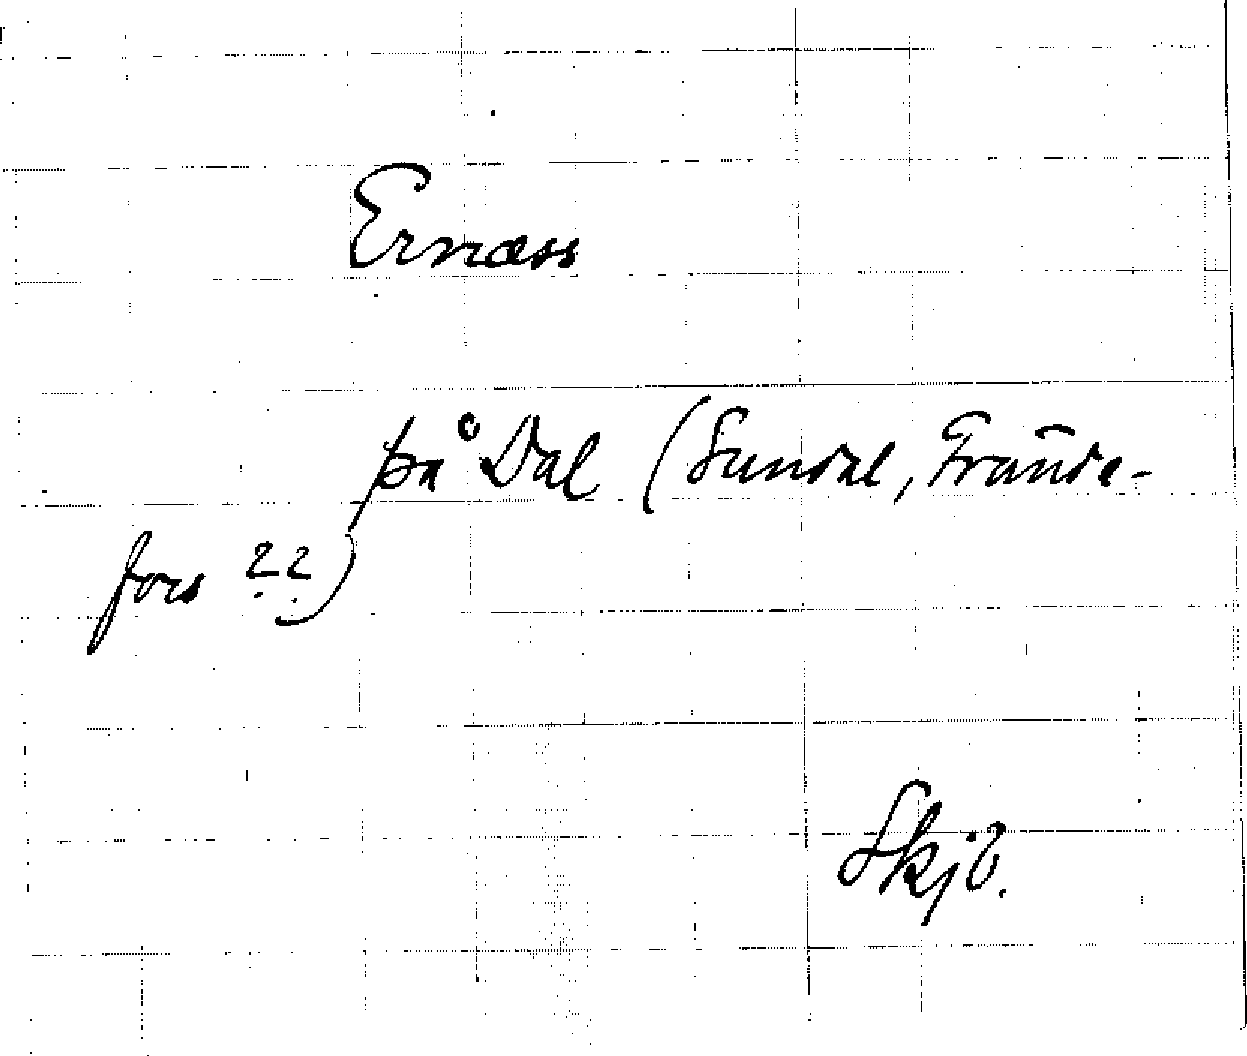 Ernæss
på Dal (Sundal, Frände-
fors ??)
Skjb.